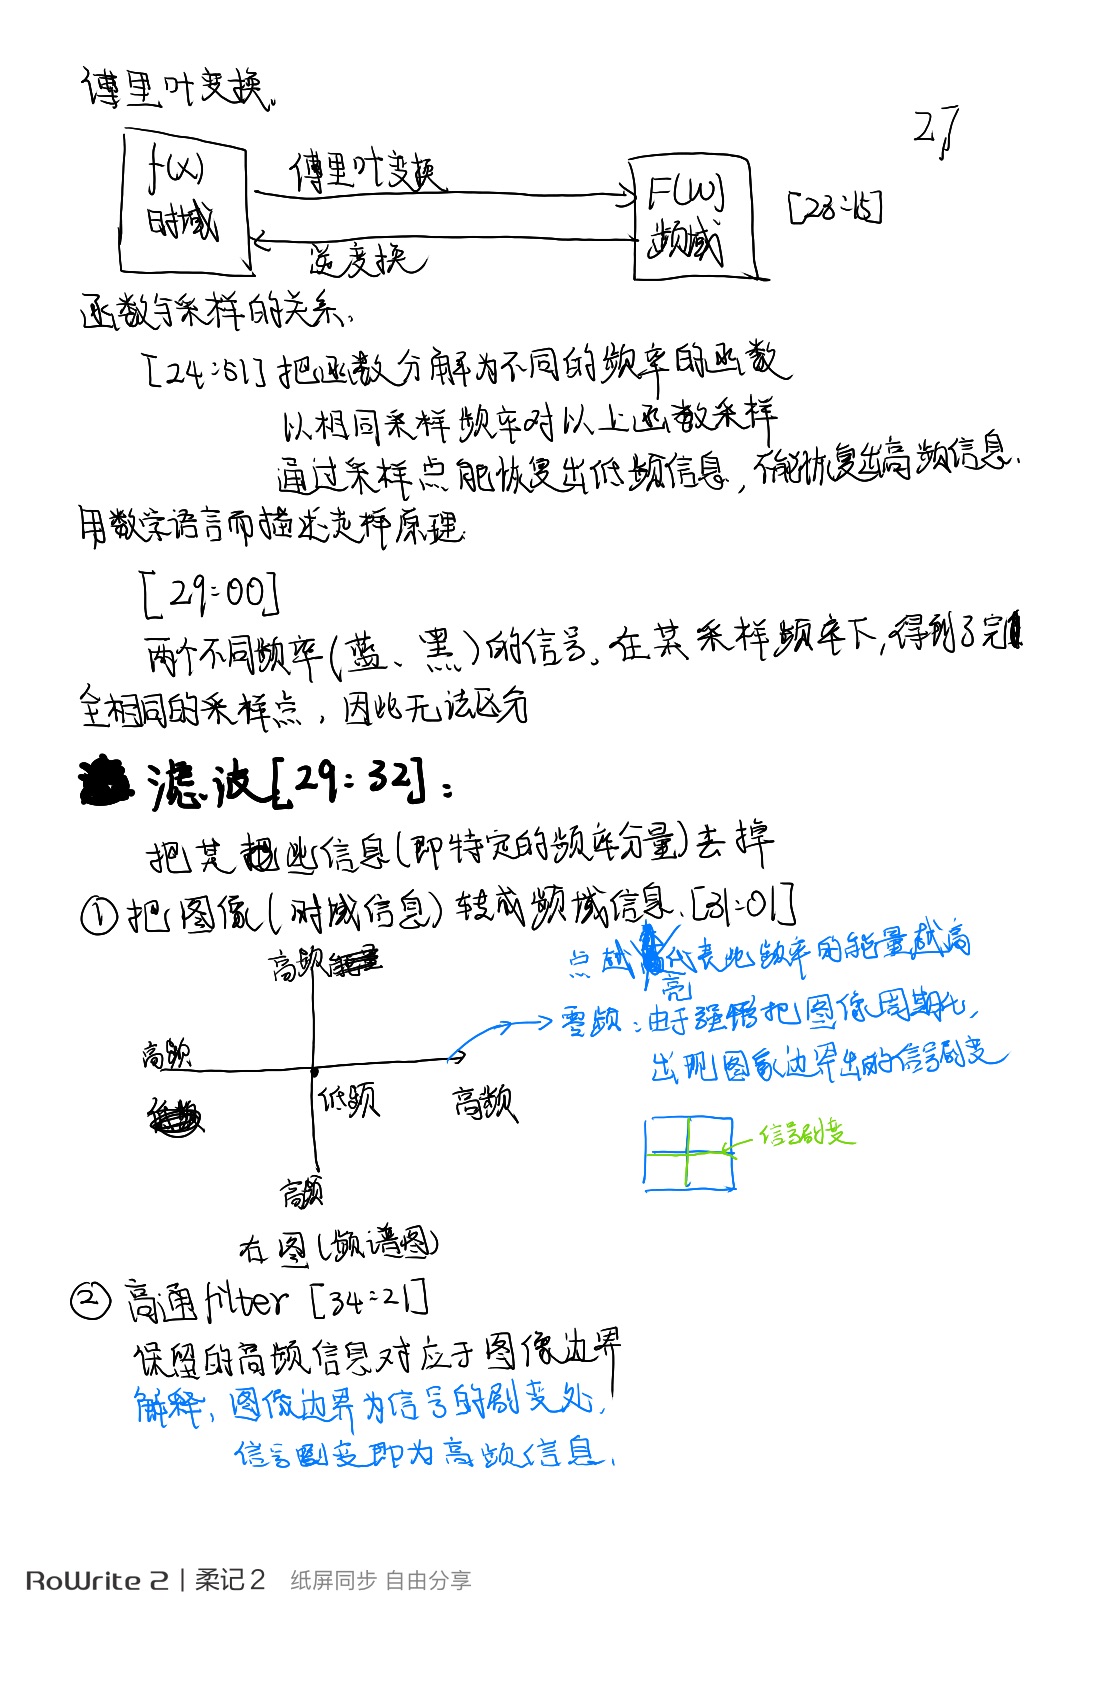 傅里叶变换.
27
f(x)
时域
傅里叶变换
逆变换
F(W)
频域
[23:15]
函数与采样的关系.
[24:51] 把函数分解为不同的频率的函数
以相同采样频率对以上函数采样
通过采样点能恢复出低频信息, 不能恢复出高频信息.
用数学语言而描述走样原理:
[29:00]
两个不同频率(蓝、黑)的信号。在某采样频率下, 得到了完
全相同的采样点, 因此无法区分
滤波[29:32]:
把某些信息(即特定的频率分量)去掉
① 把图像(时域信息)转成频域信息. [31:01]
高频
点越亮代表此频率的能量越高
零频: 由于强把图像周期化,
出现图象边界出的信号剧变
高频
低频
高频
信号剧变
高频
右图(频谱图)
② 高通filter [34:21]
保留的高频信息对应于图像边界
解释: 图像边界为信号的剧变处,
信号剧变即为高频信息.
RoWrite 2 | 柔记 2 纸屏同步 自由分享